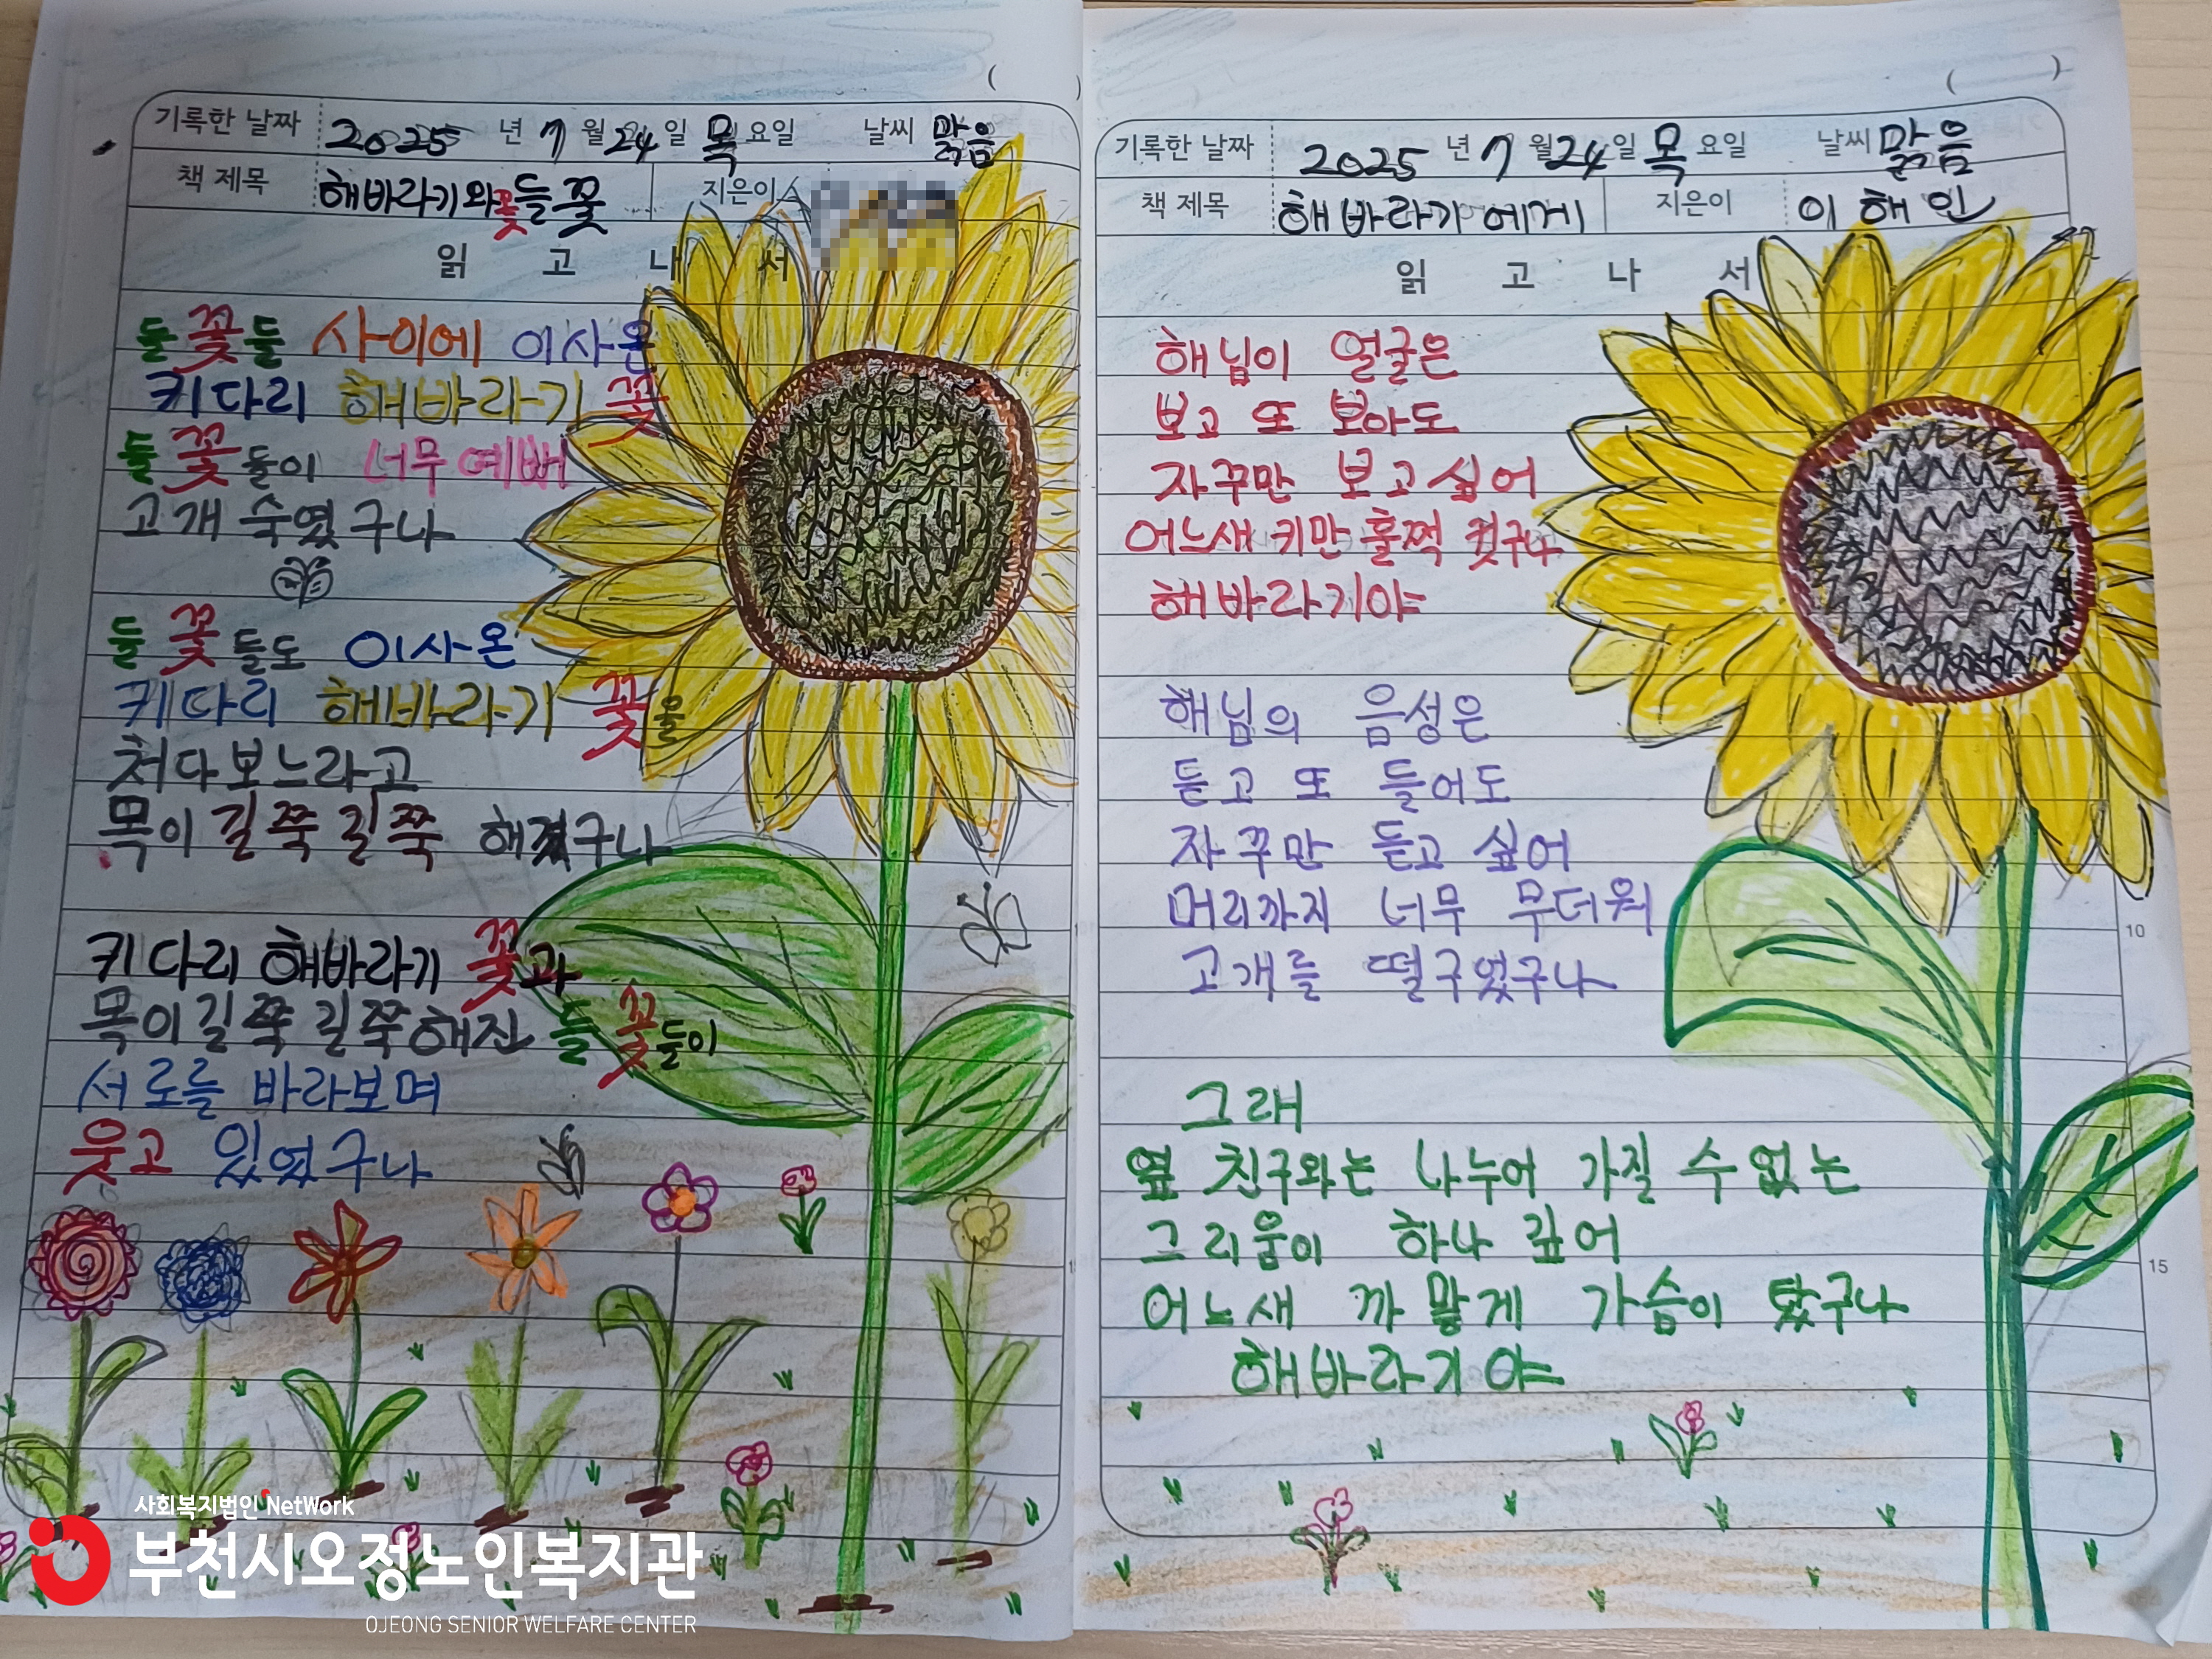 기록한 날짜 2025 년 7 월 24 일 목 요일 날씨 맑음
책 제목 해바라기와 들꽃 지은이
읽 고 나 서
들꽃들 사이에 이사온
키다리 해바라기 꽃
들꽃들이 너무 예뻐
고개 숙였구나
들꽃들도 이사온
키다리 해바라기 꽃을
처다보느라고
목이 길쭉 길쭉 해졌구나
키다리 해바라기 꽃과
목이 길쭉 길쭉해진 들꽃들이
서로를 바라보며
웃고 있었구나
사회복지법인 NetWork
부천시오정노인복지관
OJEONG SENIOR WELFARE CENTER
( )
기록한 날짜 2025 년 7 월 24 일 목 요일 날씨 맑음
책 제목 해바라기에게 지은이 이해인
읽 고 나 서
해님이 얼굴은
보고 또 보아도
자꾸만 보고싶어
어느새 키만 훌쩍 컷구나
해바라기야
해님의 음성은
듣고 또 들어도
자꾸만 듣고 싶어
머리까지 너무 무더워
고개를 떨구었구나
그래
옆 친구와는 나누어 가질 수 없는
그리움이 하나 깊어
어느새 까맣게 가슴이 탔구나
해바라기야
10
15